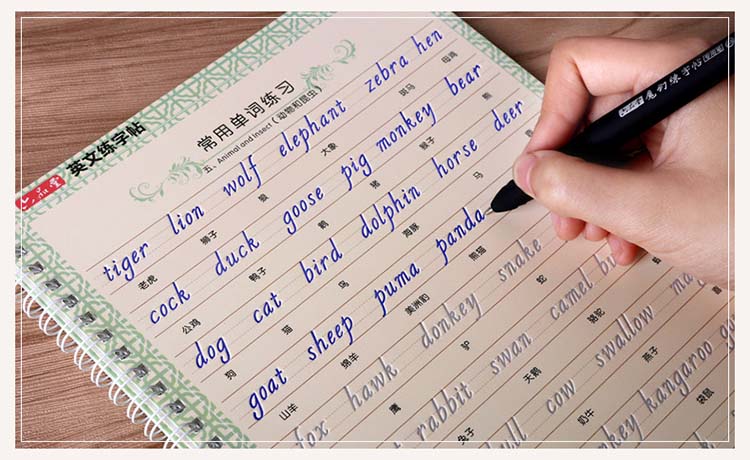 六品堂 英文练字帖
常用单词练习
五、Animal and Insect(动物和昆虫)
tiger lion wolf elephant zebra hen
老虎 狮子 狼 大象 斑马 母鸡
cock duck goose pig monkey bear
公鸡 鸭子 鹅 猪 猴子 熊
dog cat bird dolphin horse deer
狗 猫 鸟 海豚 马
goat sheep puma panda
山羊 绵羊 美洲豹 熊猫
fox hawk donkey snake
鹰 驴 蛇
rabbit swan camel
兔子 天鹅 骆驼
cow swallow
奶牛 燕子
kangaroo
袋鼠
魔幻练字帖